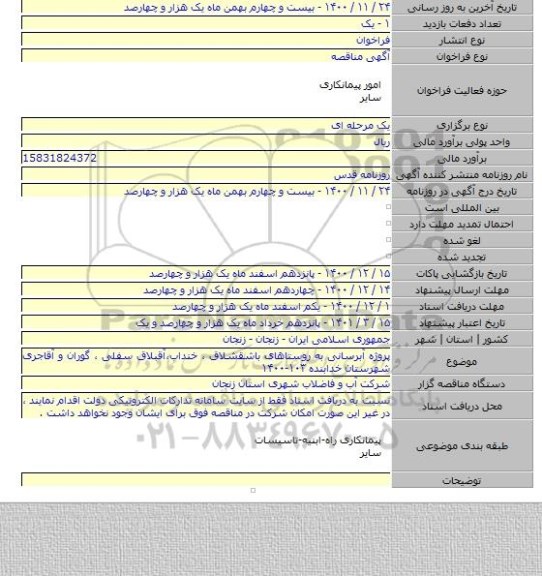 تاریخ آخرین به روز رسانی ۲۴ / ۱۱ / ۱۴۰۰ - بیست و چهارم بهمن ماه یک هزار و چهارصد
تعداد دفعات بازدید ۱ - یک
نوع انتشار فراخوان
نوع فراخوان آگهی مناقصه
حوزه فعالیت فراخوان امور پیمانکاری
سایر
نوع برگزاری یک مرحله ای
واحد پولی برآورد مالی ریال
برآورد مالی 15831824372
نام روزنامه منتشر کننده آگهی روزنامه قدس
تاریخ درج آگهی در روزنامه ۲۴ / ۱۱ / ۱۴۰۰ - بیست و چهارم بهمن ماه یک هزار و چهارصد
بین المللی است
احتمال تمدید مهلت دارد
لغو شده
تجدید شده
تاریخ بازگشایی پاکات ۱۵ / ۱۲ / ۱۴۰۰ - پانزدهم اسفند ماه یک هزار و چهارصد
مهلت ارسال پیشنهاد ۱۴ / ۱۲ / ۱۴۰۰ - چهاردهم اسفند ماه یک هزار و چهارصد
مهلت دریافت اسناد ۱ / ۱۲ / ۱۴۰۰ - یکم اسفند ماه یک هزار و چهارصد
تاریخ اعتبار پیشنهاد ۱۵ / ۳ / ۱۴۰۱ - پانزدهم خرداد ماه یک هزار و چهارصد و یک
کشور | استان | شهر جمهوری اسلامی ایران - زنجان - زنجان
موضوع پروژه آبرسانی به روستاهای باشقشلاق ، خنداب، آقبلاغ سفلی ، گوران و آقاجری
شهرستان خدابنده ۱۰۳-۱۴۰۰
دستگاه مناقصه گزار شرکت آب و فاضلاب شهری استان زنجان
محل دریافت اسناد نسبت به دریافت اسناد فقط از سایت سامانه تدارکات الکترونیکی دولت اقدام نمایند ،
در غیر این صورت امکان شرکت در مناقصه فوق برای ایشان وجود نخواهد داشت .
۰۲۱-۸۸۳۴۹۶۷۰-۵
طبقه بندی موضوعی پیمانکاری راه-ابنیه-تاسیسات
سایر
توضیحات